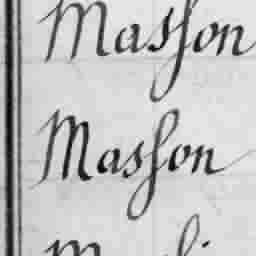 Masson
Masson